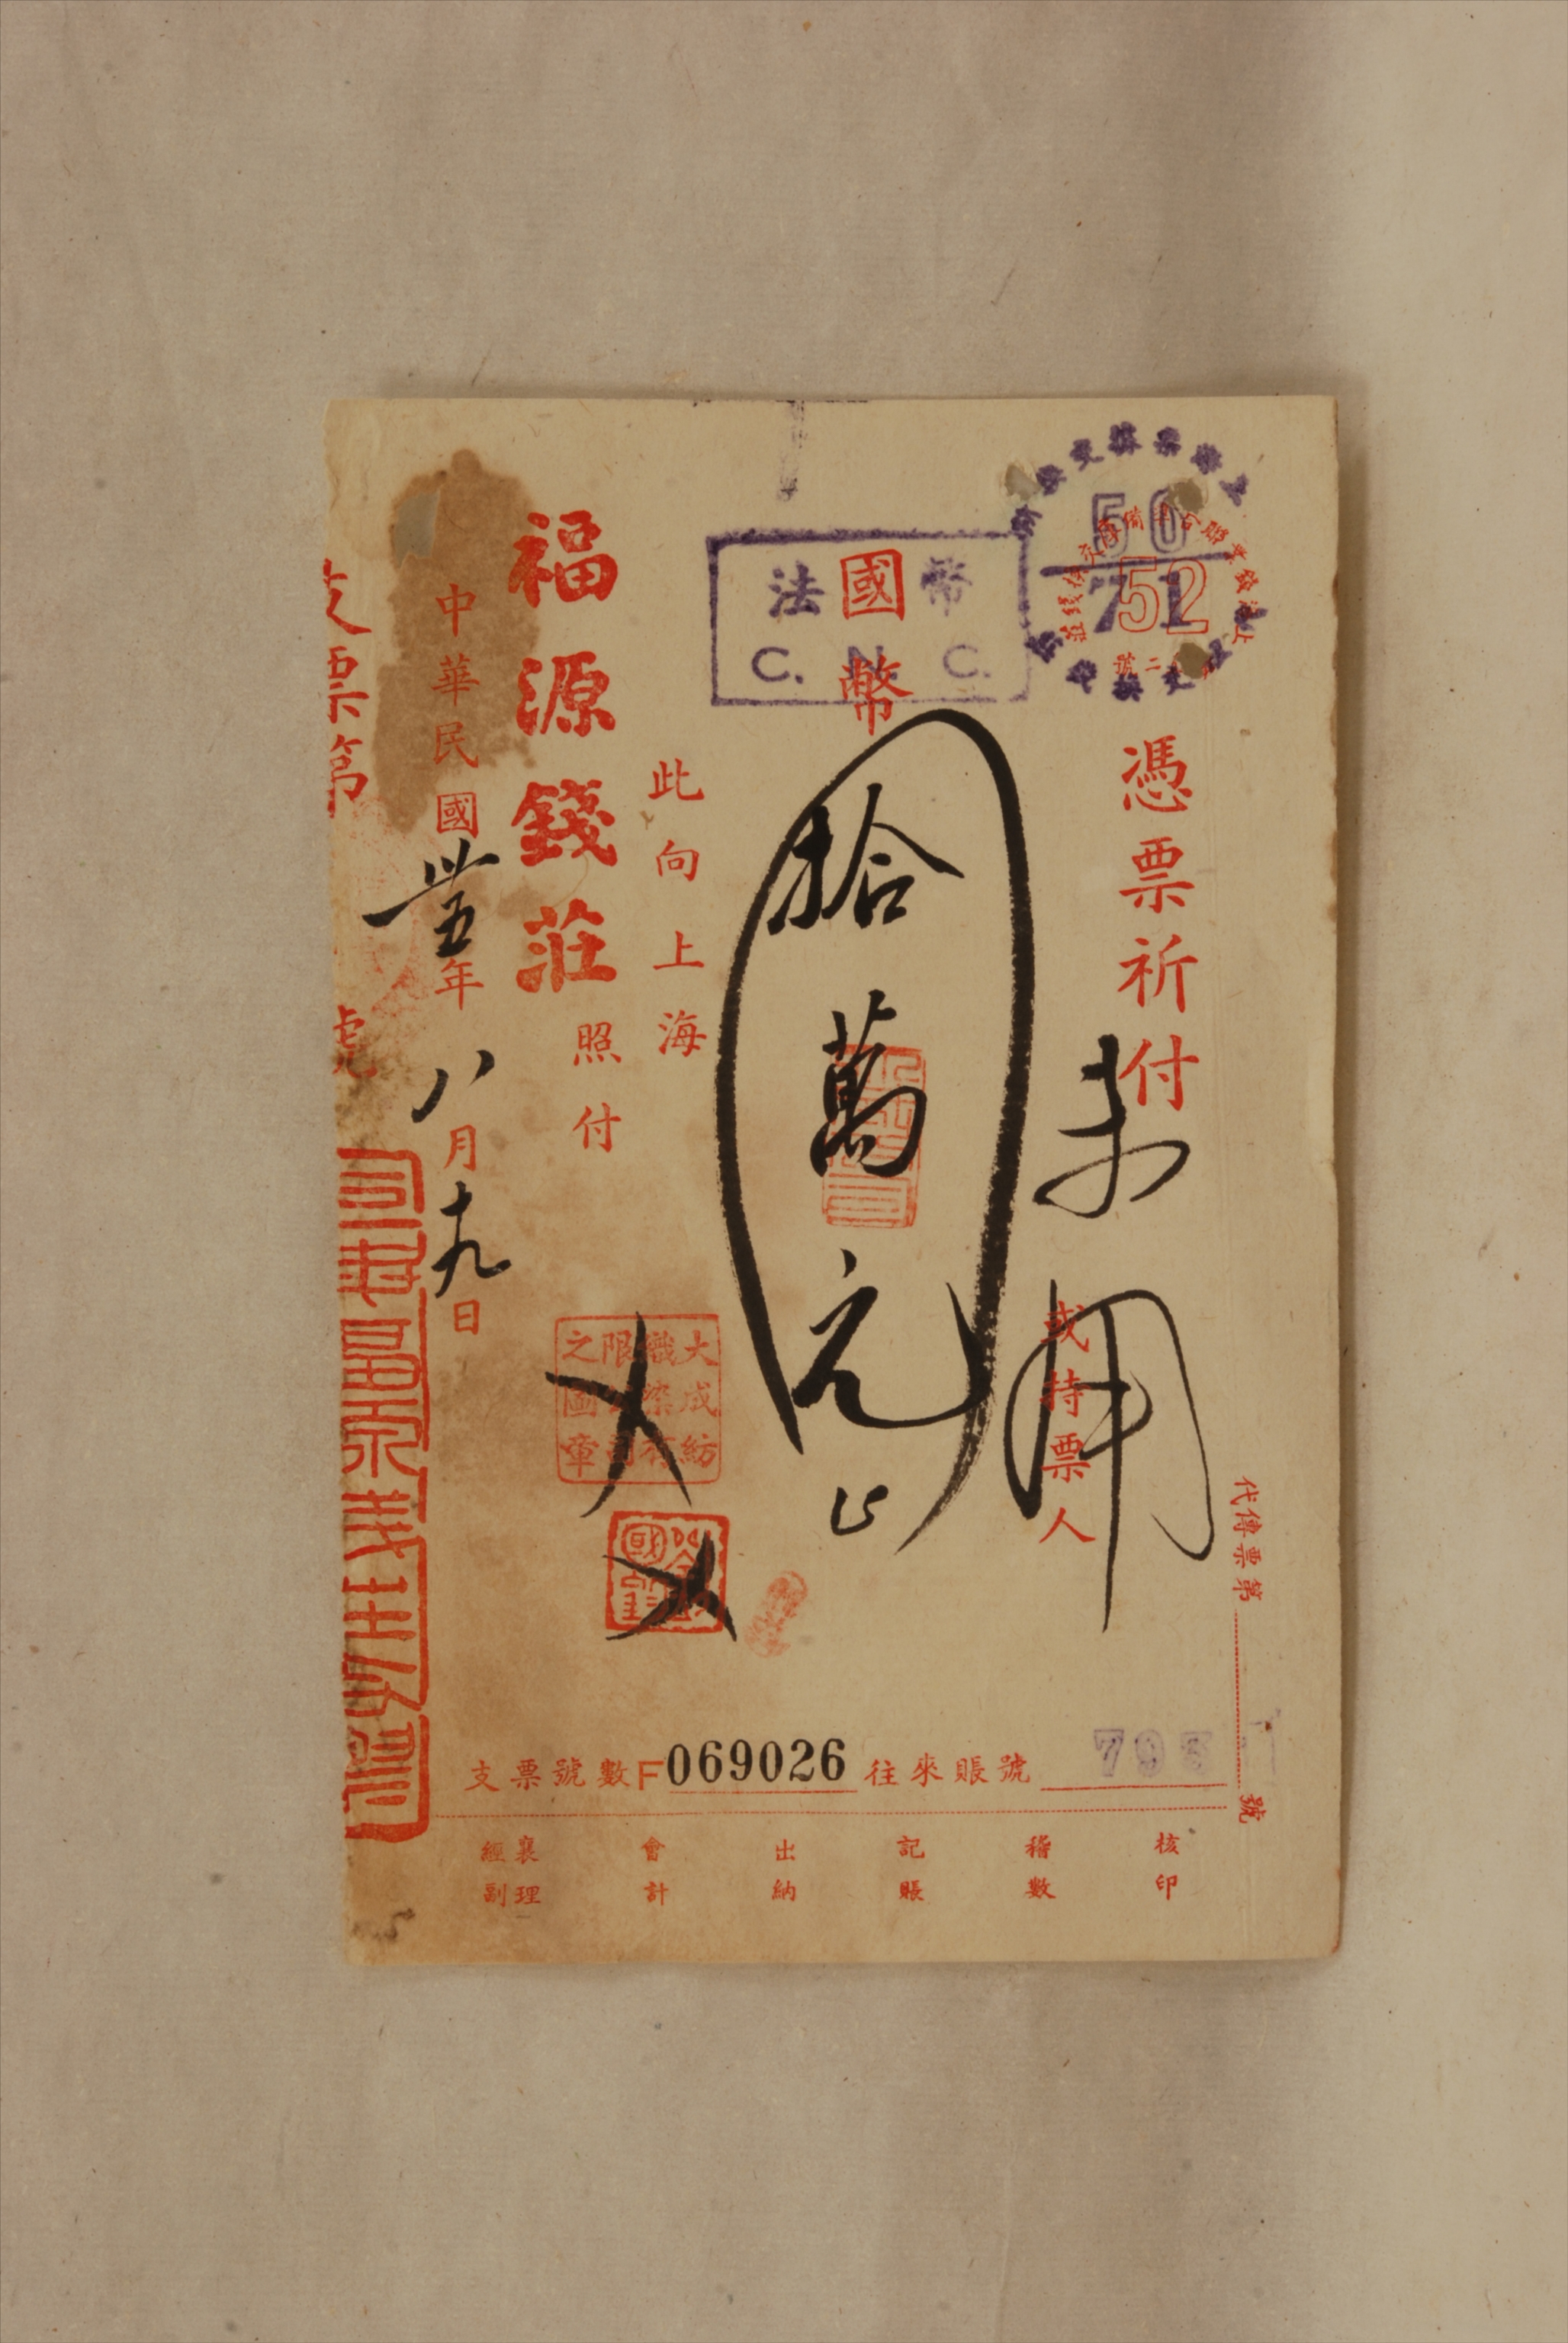 憑票祈付
或持票人
國幣
拾萬元
法幣
C. N. C.
此向上海
福源錢莊
照付
中華民國卅五年八月十九日
支票第
號
大成紡織染有限公司之圖章
50
71
52
代傳票第
號
支票號數F069026
往來賬號
793
核印
稽數
記賬
出納
會計
襄理
經副